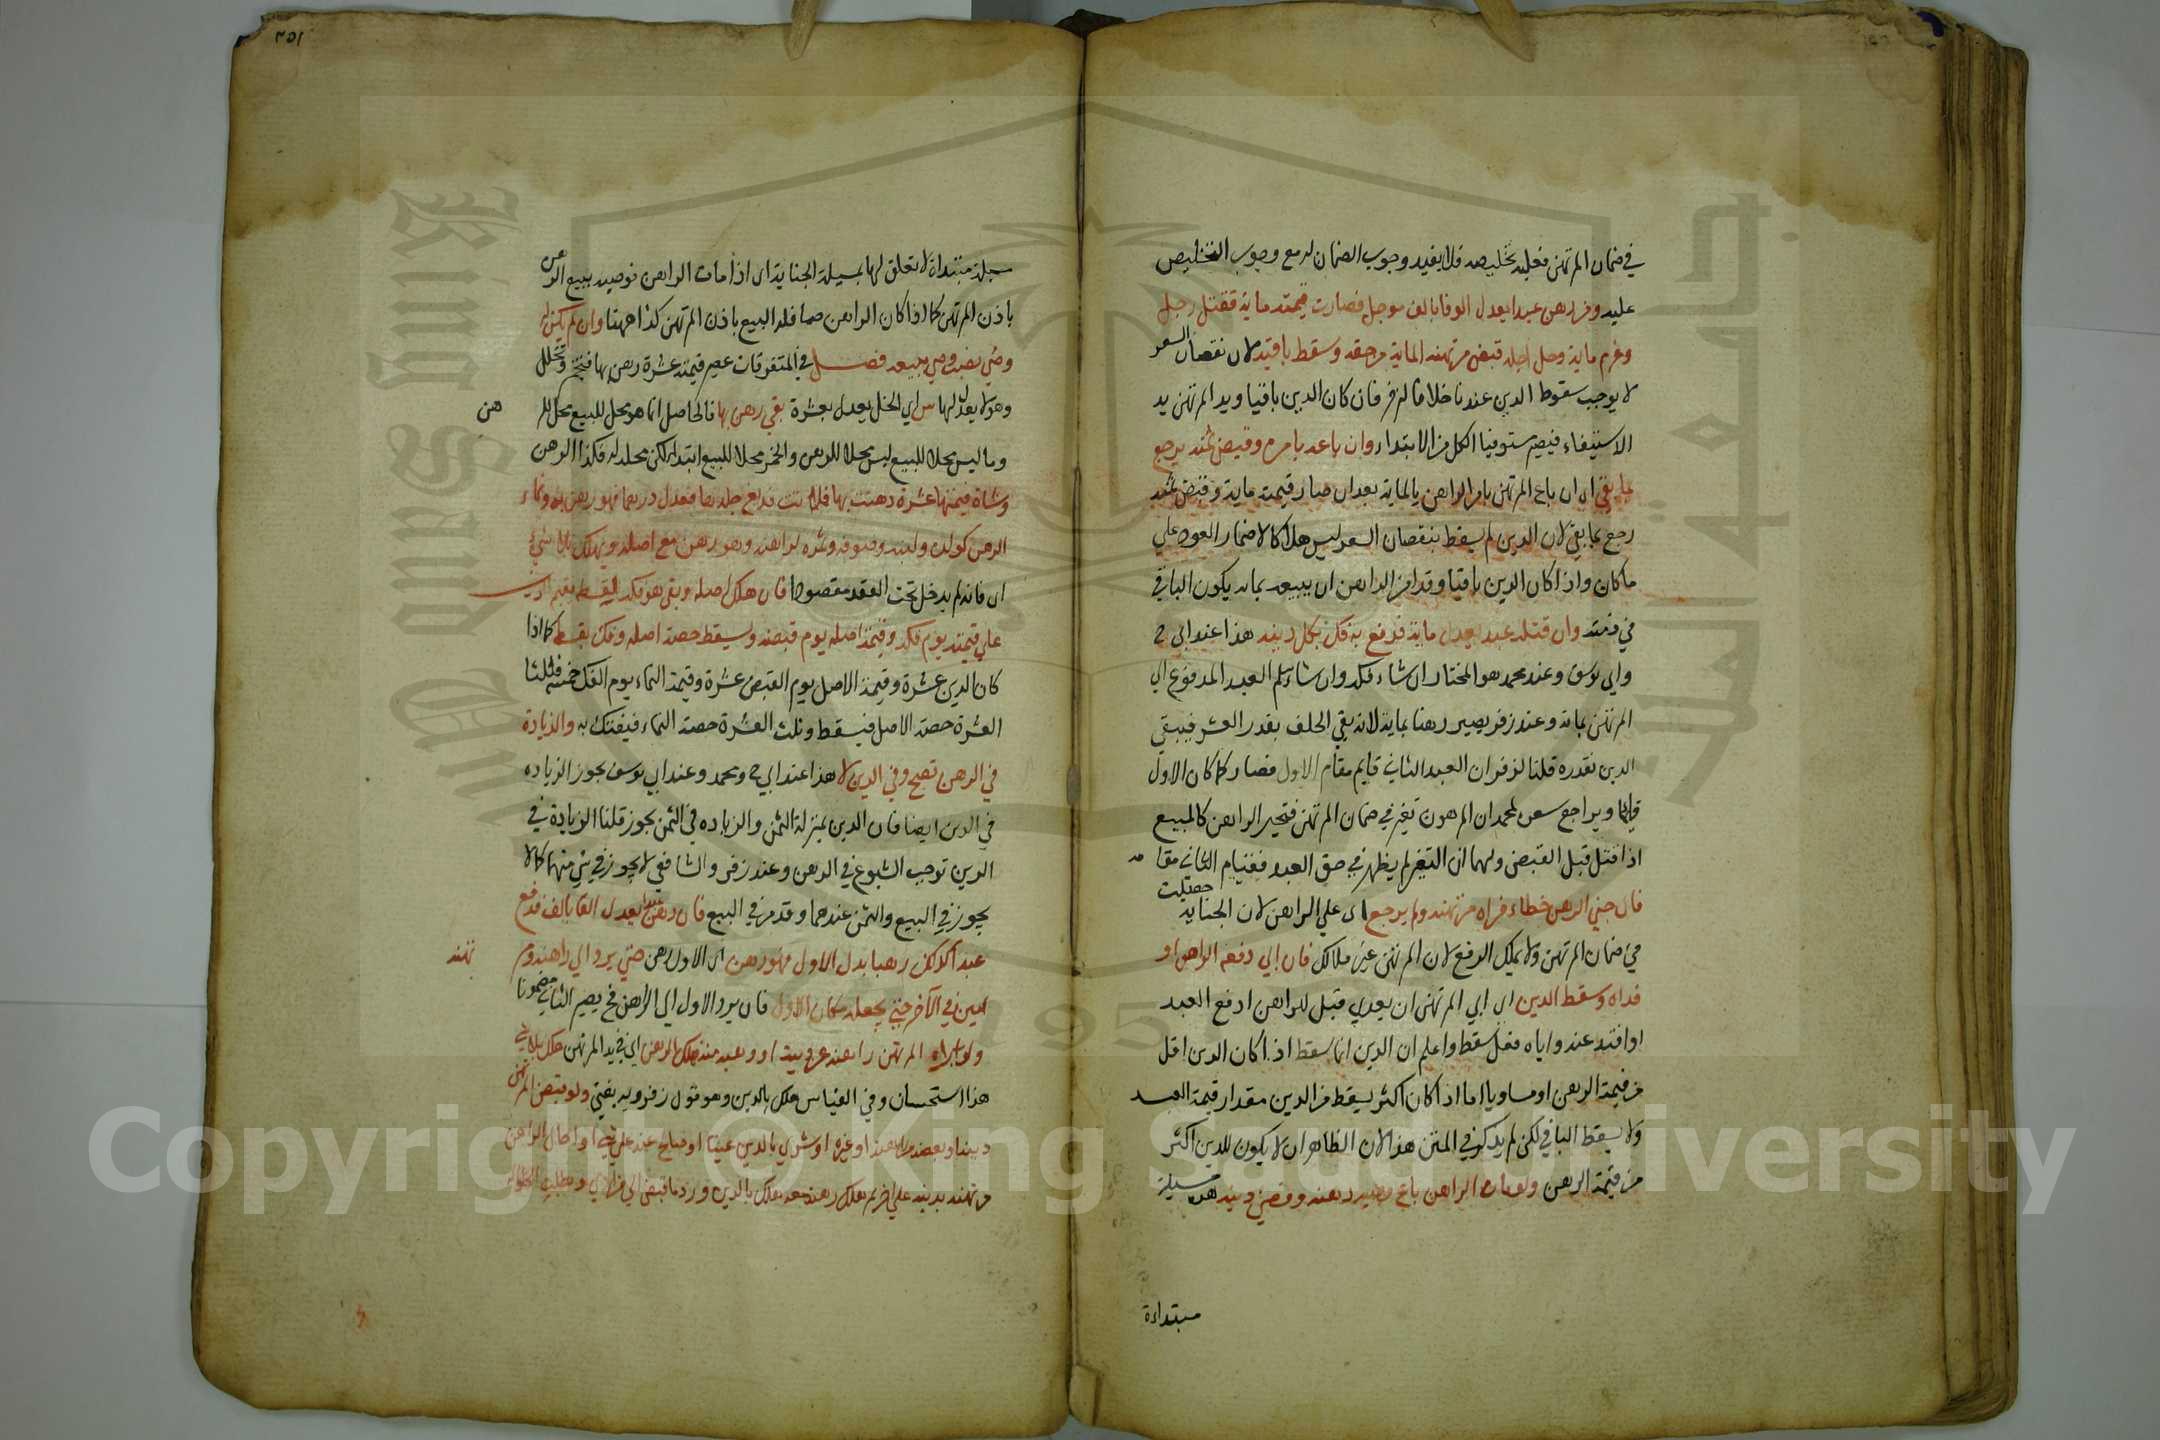 في ضمان المرتهن فعليه تخليصه فلا يفيد وجوب الضمان له مع وجوب التخليص
عليه وفي رهن عبد يعدل الوفا بالف موجل فصارت قيمته ماية فقتل رجل
وغرم ماية وحل اجله قبض مرتهنه الماية من حقه وسقط باقيه لان نقصان السعر
لا يوجب سقوط الدين عندنا خلافا لزفر فان كان الدين باقيا ويد المرتهن يد
الاستيفاء فيصير مستوفيا الكل من الابتداء وان باعه بامره وقبض ثمنه يرجع
بما بقي اي ان باع المرتهن بامر الراهن بالماية بعد ان صار قيمته ماية وقبض ثمنه
رجع بما بقي لان الدين لم يسقط بنقصان السعر ليس هلاكا لاحتمال العود علي
ما كان واذا كان الدين باقيا وقد امر الراهن ان يبيعه بماية يكون الباقي
في ذمته وان قتله عبد يعدل ماية فدفع به فك بكل دينه هذا عند ابي ح
وابي يوسف وعند محمد هو المختار ان شاء فكه وان شاء سلم العبد المدفوع الي
المرتهن بماية وعند زفر يصير رهنا بماية لانه بقي الخلف بقدر العشر فيبقي
الدين بقدره قلنا لزفر ان العبد الثاني قايم مقام الاول فصار كما كان الاول
قايما ويراجع سعره لمحمد ان المرهون تغير في ضمان المرتهن فتخير الراهن كالمبيع
اذا قتل قبل القبض ولهما ان التغير لم يظهر في حق العبد فقيام الثاني مقامه
فان جني الرهن خطاء فداه مرتهنه ولم يرجع اي علي الراهن لان الجناية حصلت
في ضمان المرتهن ولا يملك الدفع لان المرتهن غير مالك فان ابي دفعه الراهن او
فداه وسقط الدين اي ابي المرتهن ان يفدي قيل للراهن ادفع العبد
او افتد عنه واياه فعل سقط واعلم ان الدين انما سقط اذا كان الدين اقل
من قيمة الرهن او مساويا اما اذا كان اكثر يسقط من الدين مقدار قيمة العبد
ولا يسقط الباقي لكن لم يذكر في المتن هذا لان الظاهر ان لا يكون للدين اكثر
من قيمة الرهن ولو مات الراهن باع وصيه رهنه وقضي دينه هذه مسيلة
مبتداءة
٣٥١
مسيلة مبتداة لا تعلق لها بمسيلة الجناية اي اذا مات الراهن فوصيه يبيع الرهن
باذن المرتهن كما اذا كان الراهن حيا فله البيع باذن المرتهن كذا ههنا وان لم يكن له
وصي نصب وصي يبيعه فصل في المتفرقات عصير قيمته عشرة رهن بها فتخمر وتخلل
وهو لا يعدلها س اي الخل يعدل بعشرة بقي رهن بها فالحاصل انما هو محل للبيع محل للرهن
وما ليس محلا للبيع ليس محلا للرهن والخمر محلا للبيع ابتداء لكن محل له فكذا الرهن
وشاة قيمتها عشرة رهنت بها فماتت فدبغ جلدها فعدل درهما فهو رهن به ونماء
الرهن كولده ولبنه وصوفه وثمره لراهنه وهو رهن مع اصله ويهلك بلا شيء
اي فانه لم يدخل تحت العقد مقصودا فان هلك اصله وبقي هو فك بقسطه يقسم الدين
علي قيمته يوم فكه وقيمة اصله يوم قبضه ويسقط حصة اصله وفك بقسطه كما اذا
كان الدين عشرة وقيمة الاصل يوم القبض عشرة وقيمة النماء يوم الفك خمسة فثلثا
العشرة حصة الاصل فيسقط وثلث العشرة حصة النماء فيفتك به والزيادة
في الرهن تصح وفي الدين لا هذا عند ابي ح ومحمد وعند ابي يوسف يجوز الزيادة
في الدين ايضا فان الدين بمنزلة الثمن والزيادة في الثمن يجوز قلنا الزيادة في
الدين توجب الشيوع في الرهن وعند زفر والشافعي لا يجوز في شي منهما كما لا
يجوز في البيع والثمن عندهما وقد مر في البيع فان رهن عبدا يعدل الفا بالف فدفع
عبدا كذلك رهنا بدل الاول فهو رهن اي الاول رهن حتي يرد الي راهنه ومرتهنه
امين في الآخر حتي يجعله مكان الاول فان يرد الاول الي الراهن فح يصير الثاني مضمونا
ولو ابراء المرتهن راهنه عن دينه او وهبه منه فهلك الرهن اي في يد المرتهن هلك بلا شي
هذا استحسان وفي القياس هلك بالدين وهو قول زفر وبه يفتي ولو قبض المرتهن
دينه او بعضه من راهنه او غيره او شري بالدين عينا او صالح عنه علي شي او احال الراهن
مرتهنه بدينه علي اخر ثم هلك رهنه معه هلك بالدين ورد ما قبض الي من ادي وبطلت الحوالة
Copyright © King Saud University
King Saud University
1957